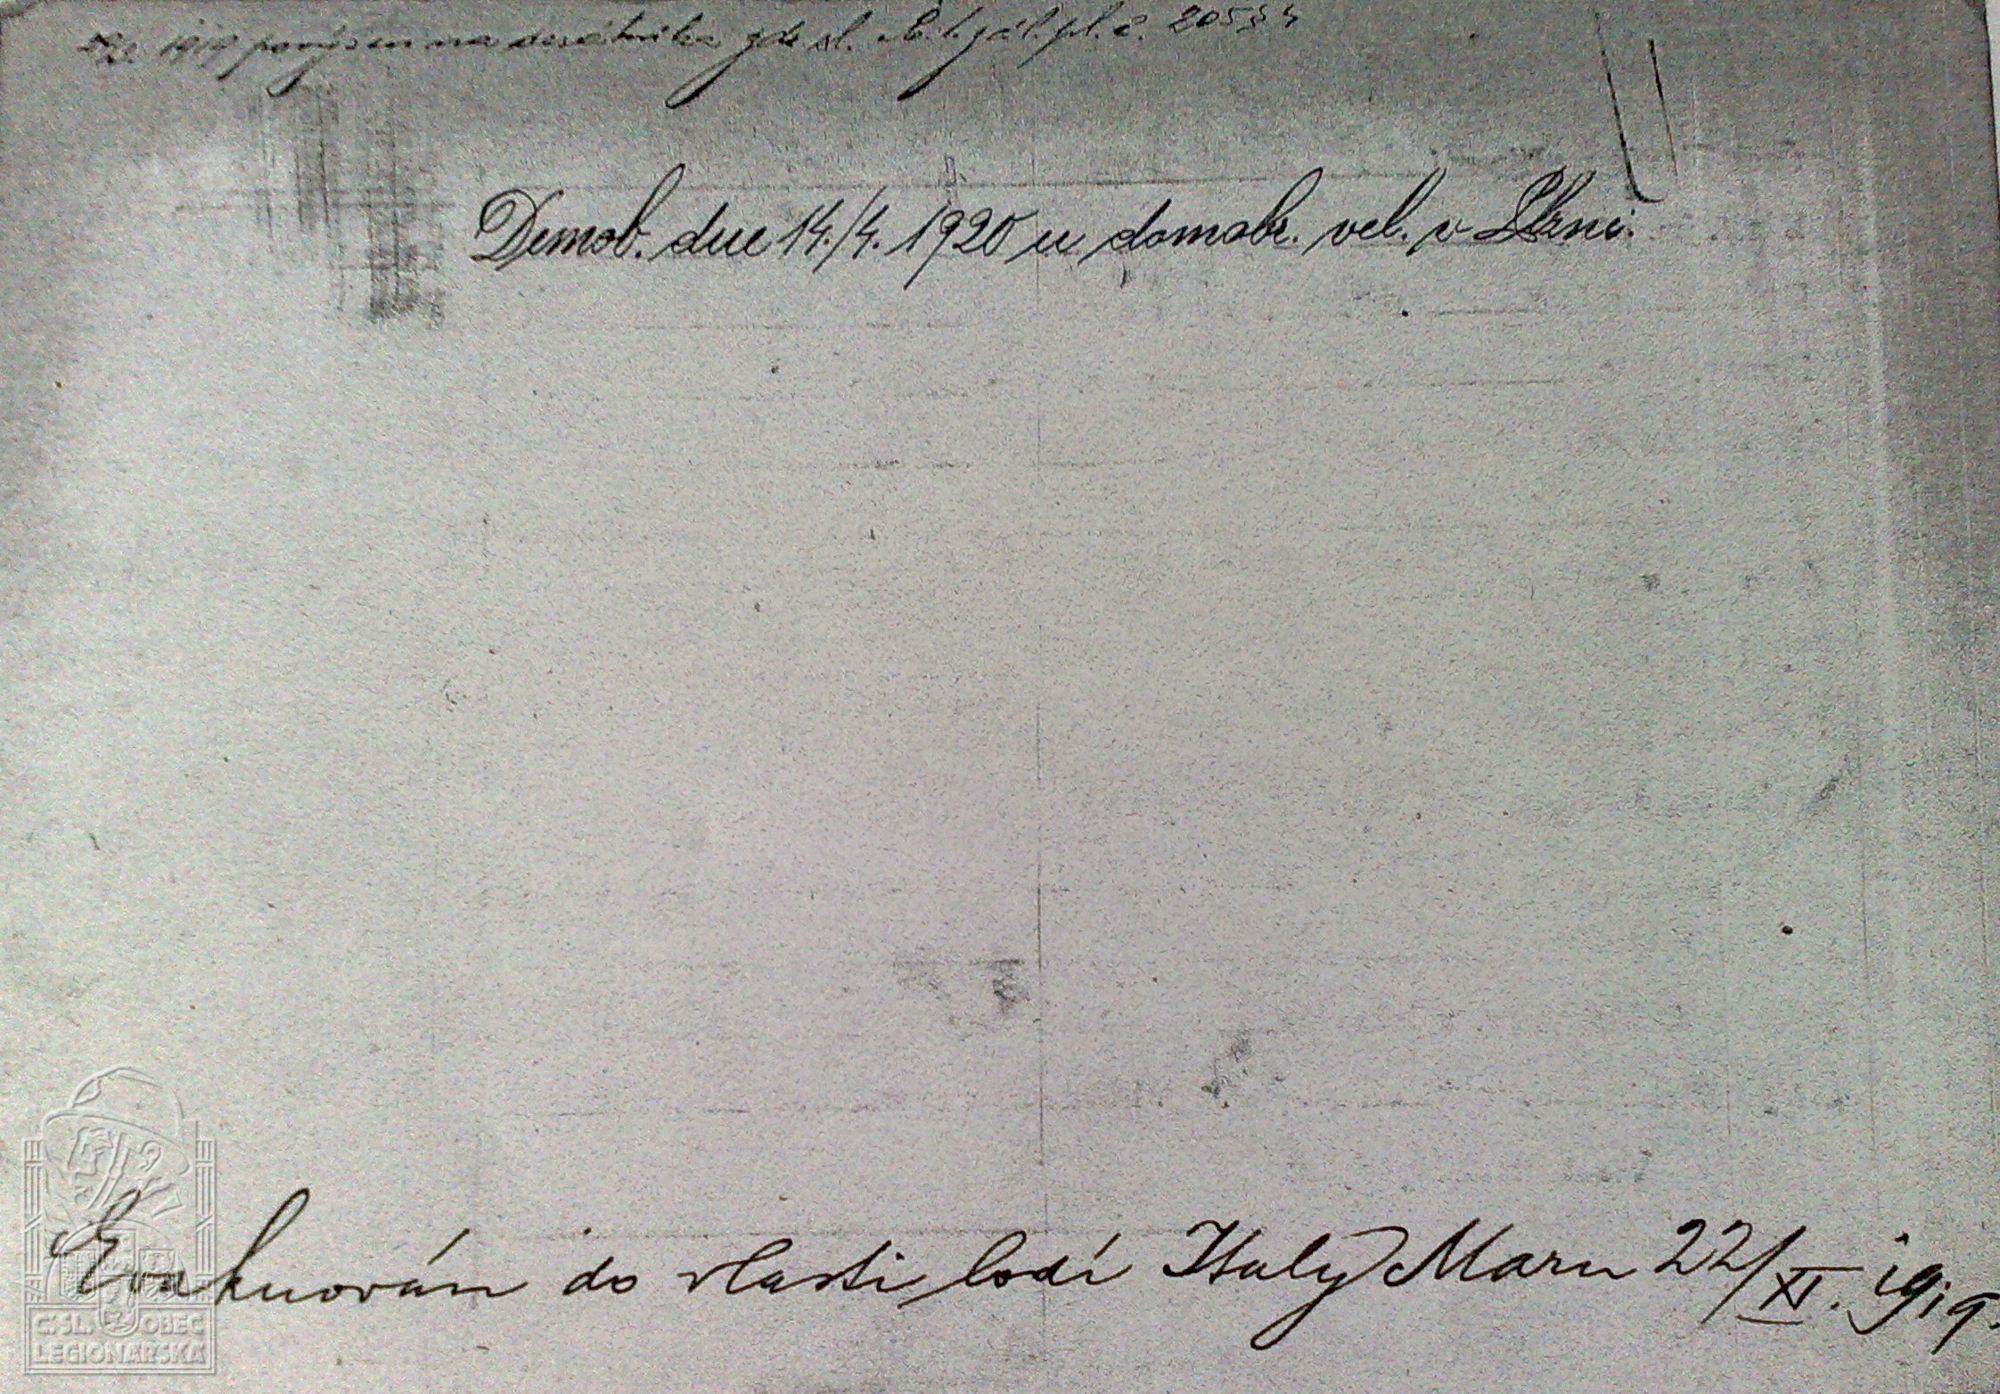 1919 povýšen na desátníka rozk. čl. pl. č. 205 § 4
Demob. dne 14./4. 1920 u domobr. vel. v Plzni.
Evakuován do vlasti lodí Italy Maru 22/XI. 1919.
Č. SL. OBEC
LEGIONÁŘSKÁ